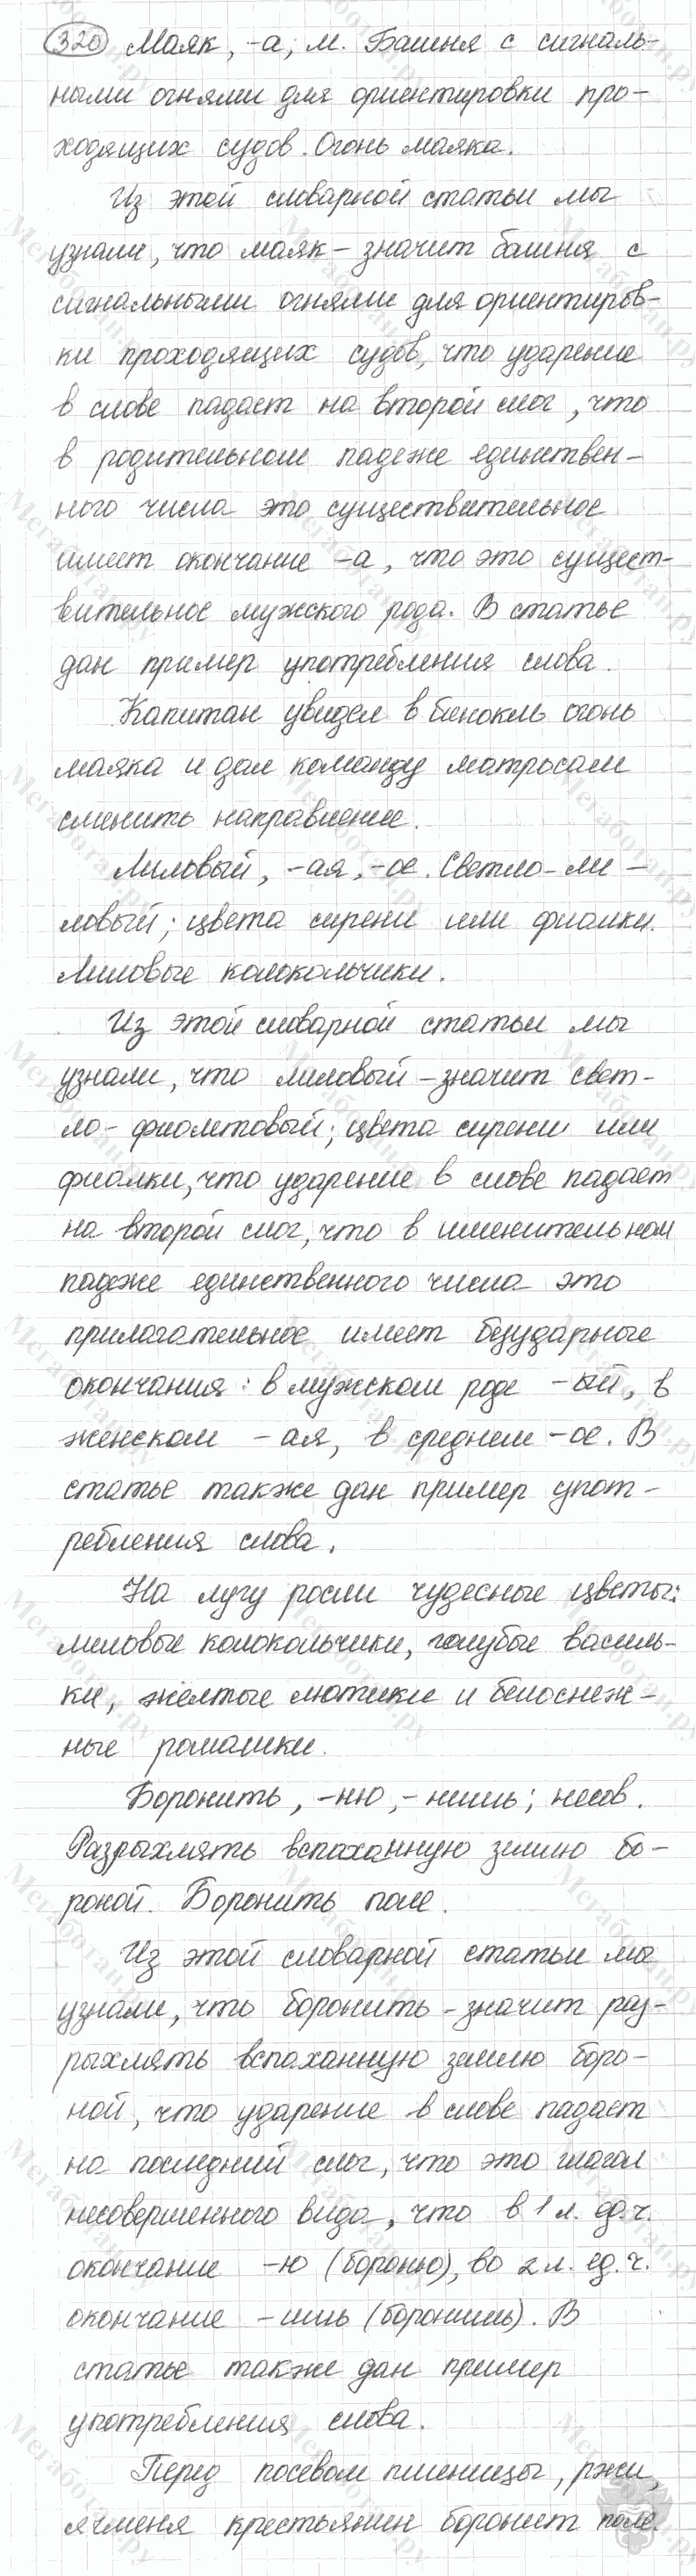 320 Маяк, -а, м. Башня с сигналь-
ными огнями для ориентировки про-
ходящих судов. Огонь маяка.
Из этой словарной статьи мы
узнали, что маяк - значит башня с
сигнальными огнями для ориентиров-
ки проходящих судов, что ударение
в слове падает на второй слог, что
в родительном падеже единствен-
ного числа это существительное
имеет окончание -а, что это сущест-
вительное мужского рода. В статье
дан пример употребления слова.
Капитан увидел в бинокль огонь
маяка и дал команду матросам
сменить направление.
Лиловый, -ая, -ое. Светло-ли-
ловый; цвета сирени или фиалки.
Лиловые колокольчики.
Из этой словарной статьи мы
узнали, что лиловый - значит свет-
ло-фиолетовый; цвета сирени или
фиалки, что ударение в слове падает
на второй слог, что в именительном
падеже единственного числа это
прилагательное имеет безударные
окончания: в мужском роде -ый, в
женском -ая, в среднем -ое. В
статье также дан пример упот-
ребления слова.
На лугу росли чудесные цветы:
лиловые колокольчики, голубые василь-
ки, жёлтые лютики и белоснеж-
ные ромашки.
Боронить, -ню, -нишь; несов.
Разрыхлять вспаханную землю бо-
роной. Боронить поле.
Из этой словарной статьи мы
узнали, что боронить - значит раз-
рыхлять вспаханную землю боро-
ной, что ударение в слове падает
на последний слог, что это глагол
несовершенного вида, что в 1 л. ед. ч.
окончание -ю (бороню), во 2 л. ед. ч.
окончание -ишь (боронишь). В
статье также дан пример
употребления слова.
Перед посевом пшеницы, ржи,
ячменя крестьянин боронит поле.